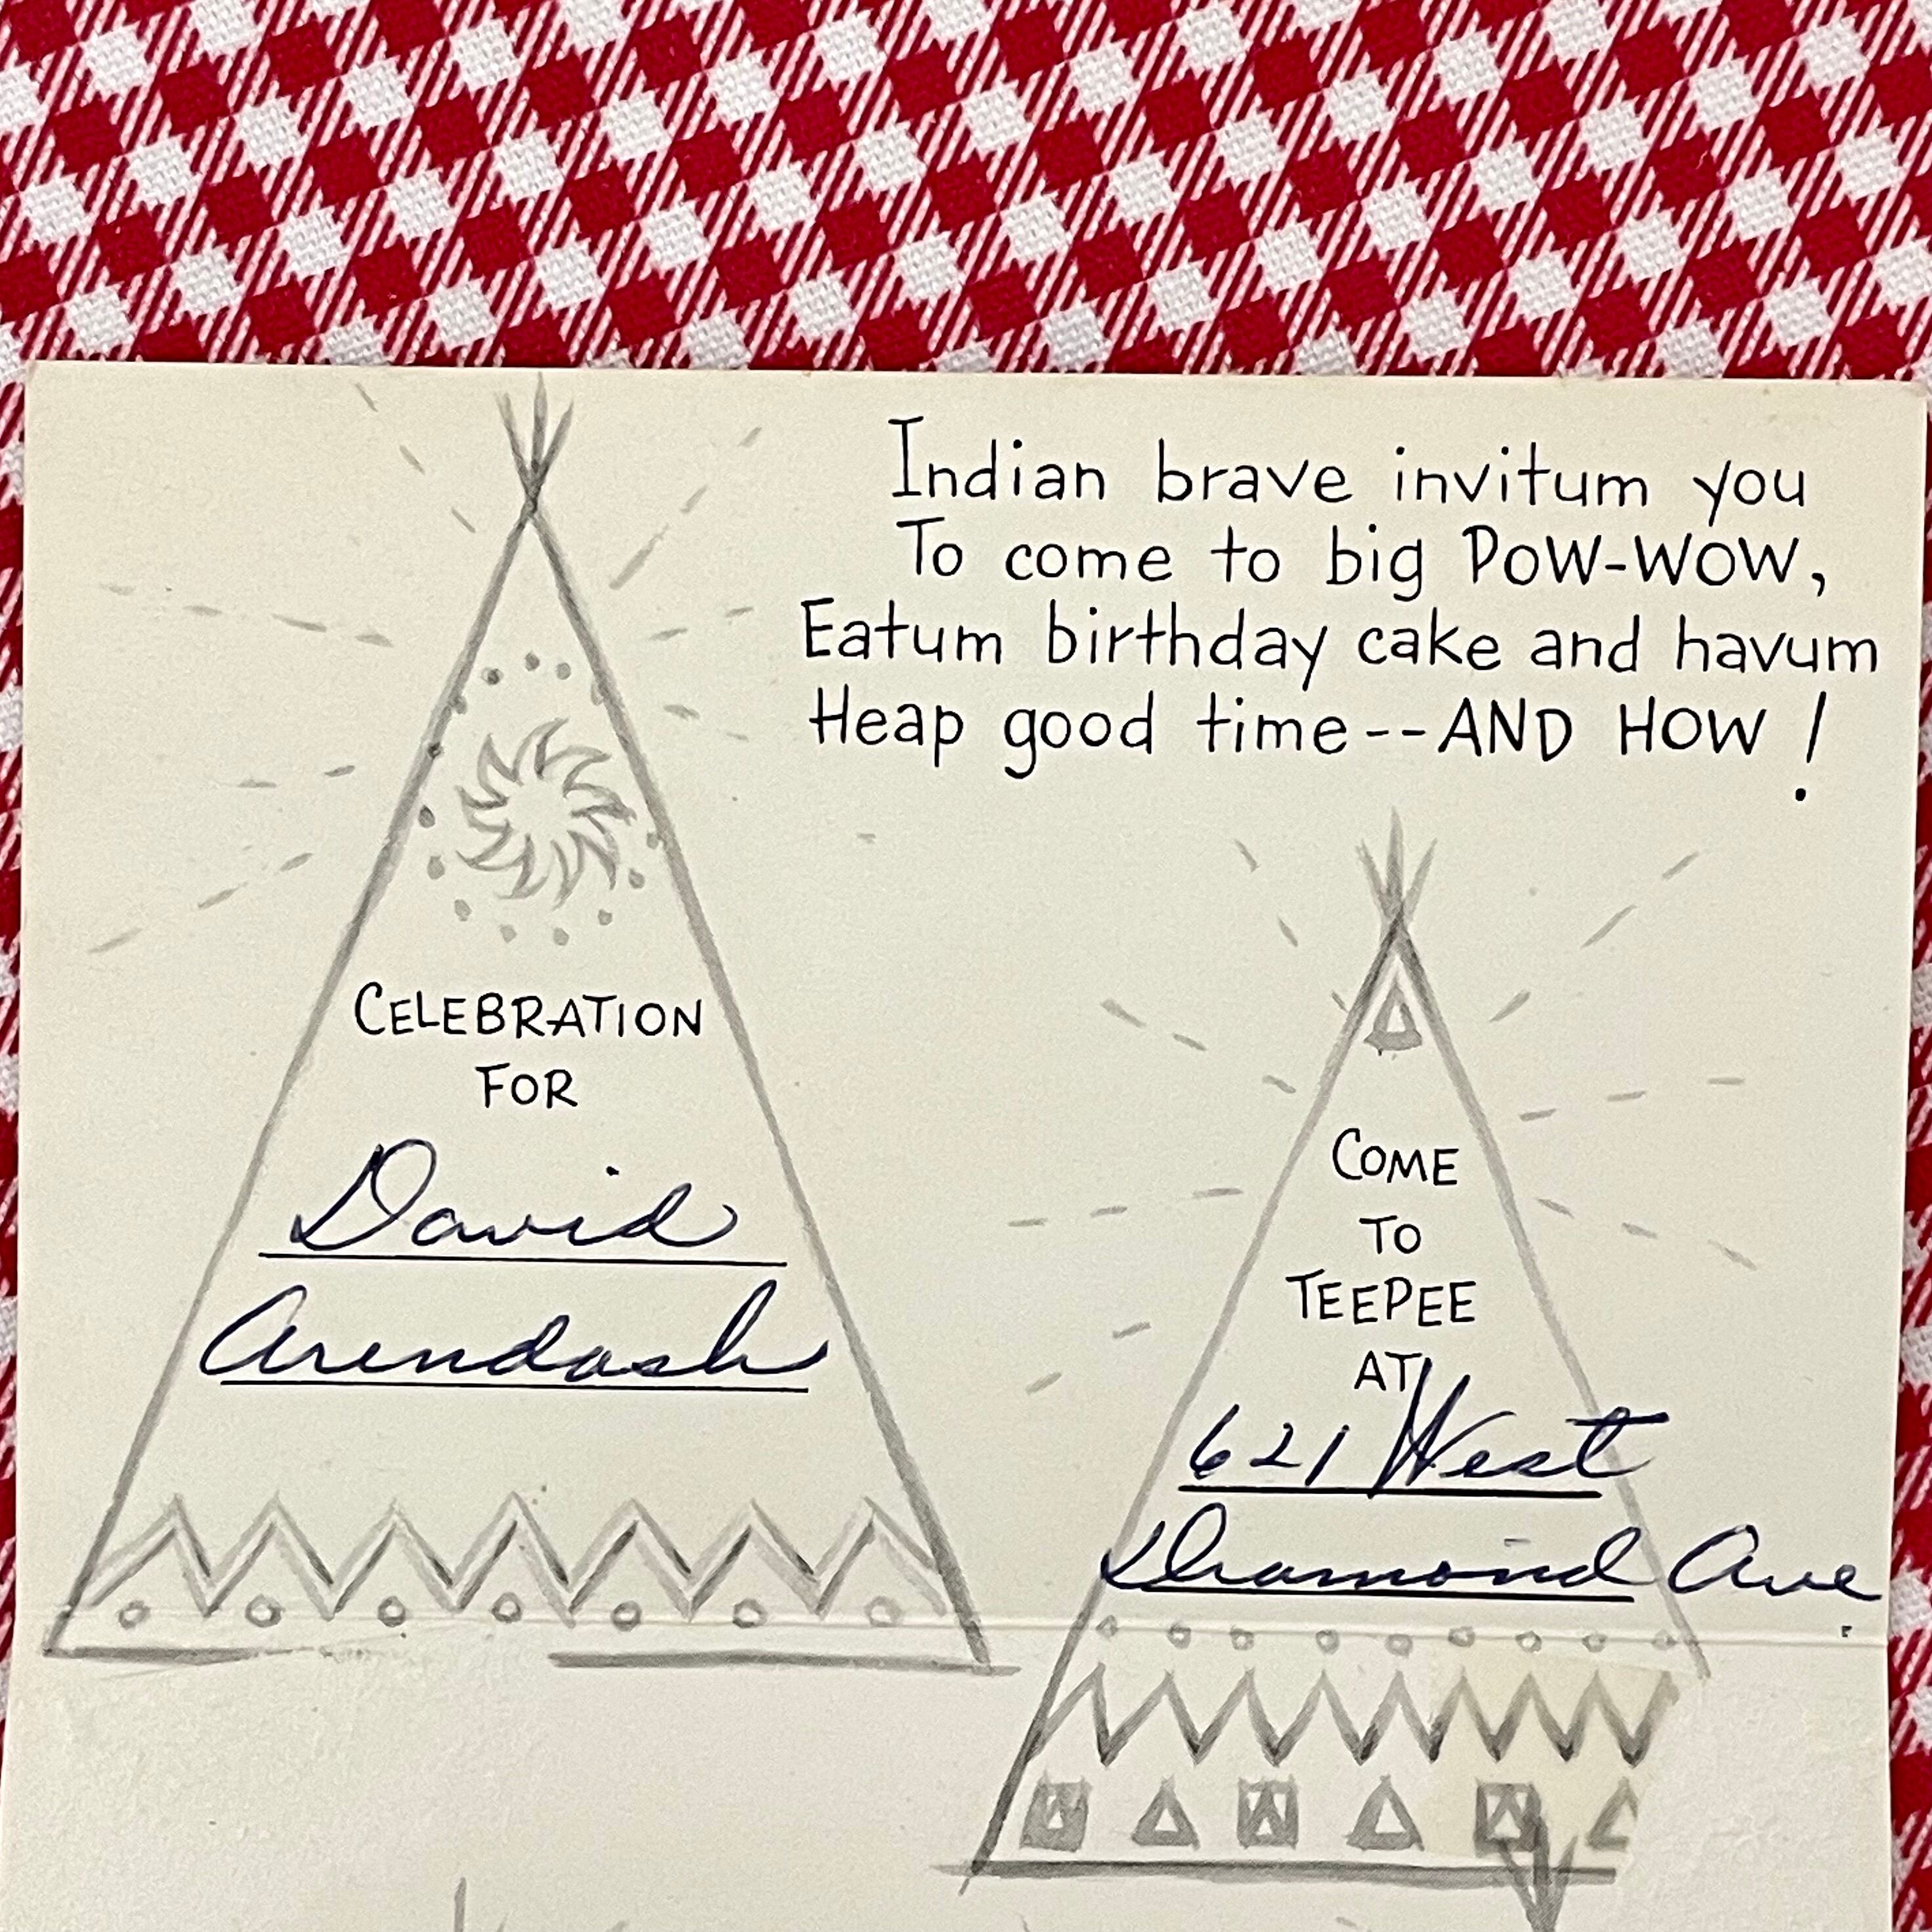 Indian brave invitum you
To come to big POW-WOW,
Eatum birthday cake and havum
Heap good time--AND HOW!
CELEBRATION
FOR
David
Arendash
COME
TO
TEEPEE
AT
621 West
Diamond Ave.